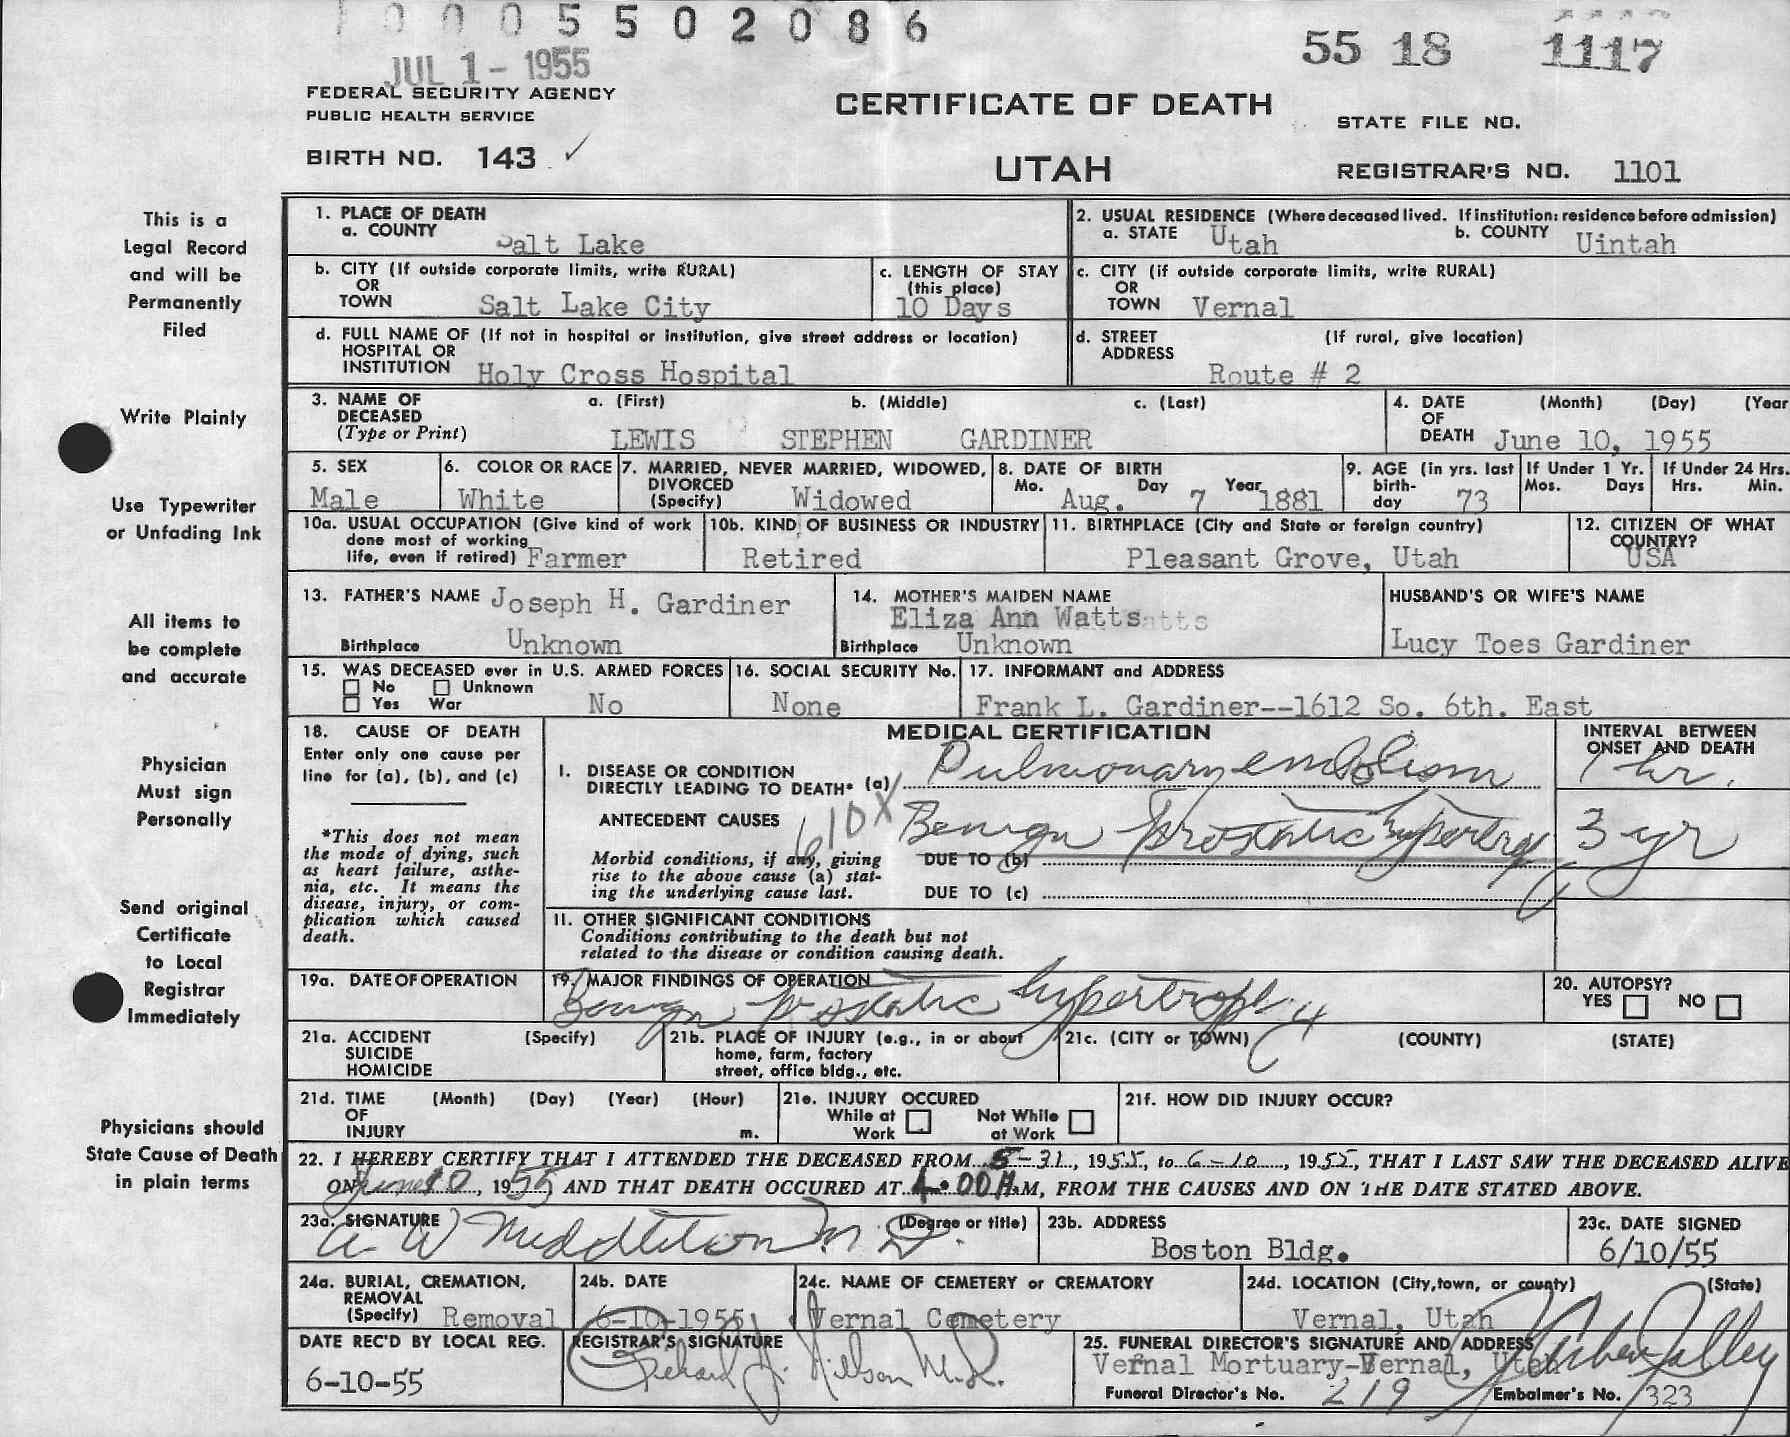 0005502086
JUL 1 - 1955
55 18 1117
FEDERAL SECURITY AGENCY
PUBLIC HEALTH SERVICE
CERTIFICATE OF DEATH
STATE FILE NO.
BIRTH NO. 143 ✓
UTAH
REGISTRAR'S NO. 1101
This is a
Legal Record
and will be
Permanently
Filed
Write Plainly
Use Typewriter
or Unfading Ink
All items to
be complete
and accurate
Physician
Must sign
Personally
Send original
Certificate
to Local
Registrar
Immediately
Physicians should
State Cause of Death
in plain terms
1. PLACE OF DEATH
a. COUNTY Salt Lake
2. USUAL RESIDENCE (Where deceased lived. If institution: residence before admission)
a. STATE Utah b. COUNTY Uintah
b. CITY (If outside corporate limits, write RURAL)
OR
TOWN Salt Lake City
c. LENGTH OF STAY
(this place)
10 Days
c. CITY (if outside corporate limits, write RURAL)
OR
TOWN Vernal
d. FULL NAME OF (If not in hospital or institution, give street address or location)
HOSPITAL OR
INSTITUTION Holy Cross Hospital
d. STREET (If rural, give location)
ADDRESS
Route # 2
3. NAME OF a. (First) b. (Middle) c. (Last)
DECEASED
(Type or Print) LEWIS STEPHEN GARDINER
4. DATE (Month) (Day) (Year
OF
DEATH June 10, 1955
5. SEX
Male
6. COLOR OR RACE
White
7. MARRIED, NEVER MARRIED, WIDOWED,
DIVORCED
(Specify) Widowed
8. DATE OF BIRTH
Mo. Day Year
Aug. 7 1881
9. AGE (in yrs. last
birth-
day 73
If Under 1 Yr.
Mos. Days
If Under 24 Hrs.
Hrs. Min.
10a. USUAL OCCUPATION (Give kind of work
done most of working
life, even if retired) Farmer
10b. KIND OF BUSINESS OR INDUSTRY
Retired
11. BIRTHPLACE (City and State or foreign country)
Pleasant Grove, Utah
12. CITIZEN OF WHAT
COUNTRY?
USA
13. FATHER'S NAME Joseph H. Gardiner
Birthplace Unknown
14. MOTHER'S MAIDEN NAME
Eliza Ann Watts
Birthplace Unknown
HUSBAND'S OR WIFE'S NAME
Lucy Toes Gardiner
15. WAS DECEASED ever in U.S. ARMED FORCES
No Unknown
Yes War No
16. SOCIAL SECURITY No.
None
17. INFORMANT and ADDRESS
Frank L. Gardiner--1612 So. 6th. East
18. CAUSE OF DEATH
Enter only one cause per
line for (a), (b), and (c)
*This does not mean
the mode of dying, such
as heart failure, asthe-
nia, etc. It means the
disease, injury, or com-
plication which caused
death.
MEDICAL CERTIFICATION
INTERVAL BETWEEN
ONSET AND DEATH
I. DISEASE OR CONDITION
DIRECTLY LEADING TO DEATH* (a) Pulmonary embolism 1 hr.
ANTECEDENT CAUSES 610X
Morbid conditions, if any, giving
rise to the above cause (a) stat-
ing the underlying cause last.
DUE TO (b) Benign Prostatic hypertrophy 3 yr
DUE TO (c)
II. OTHER SIGNIFICANT CONDITIONS
Conditions contributing to the death but not
related to the disease or condition causing death.
19a. DATE OF OPERATION
19. MAJOR FINDINGS OF OPERATION
Benign prostatic hypertrophy
20. AUTOPSY?
YES NO
21a. ACCIDENT (Specify)
SUICIDE
HOMICIDE
21b. PLACE OF INJURY (e.g., in or about
home, farm, factory
street, office bldg., etc.
21c. (CITY or TOWN) (COUNTY) (STATE)
21d. TIME (Month) (Day) (Year) (Hour)
OF
INJURY m.
21e. INJURY OCCURED
While at Not While
Work at Work
21f. HOW DID INJURY OCCUR?
22. I HEREBY CERTIFY THAT I ATTENDED THE DECEASED FROM 5-31, 1955, to 6-10, 1955, THAT I LAST SAW THE DECEASED ALIVE
ON June 10, 1955, AND THAT DEATH OCCURED AT 4:00 A.M, FROM THE CAUSES AND ON THE DATE STATED ABOVE.
23a. SIGNATURE (Degree or title)
A W Middleton M D.
23b. ADDRESS
Boston Bldg.
23c. DATE SIGNED
6/10/55
24a. BURIAL, CREMATION,
REMOVAL
(Specify) Removal
24b. DATE
6-10-1955
24c. NAME OF CEMETERY or CREMATORY
Vernal Cemetery
24d. LOCATION (City, town, or county) (State)
Vernal, Utah
DATE REC'D BY LOCAL REG.
6-10-55
REGISTRAR'S SIGNATURE
Richard J. Nielson M.D.
25. FUNERAL DIRECTOR'S SIGNATURE AND ADDRESS
Vernal Mortuary-Vernal, Utah
Funeral Director's No. 219 Embalmer's No. 323